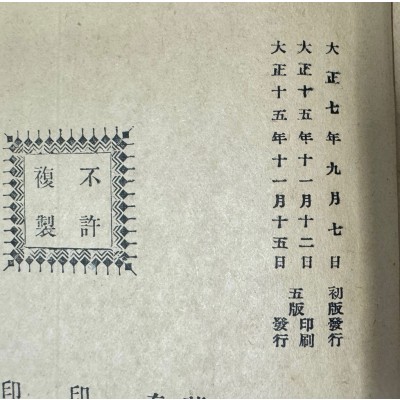 大正七年九月七日 初版發行
大正十五年十一月十二日 印刷
五版
大正十五年十一月十五日 發行
不許
複製
印
印